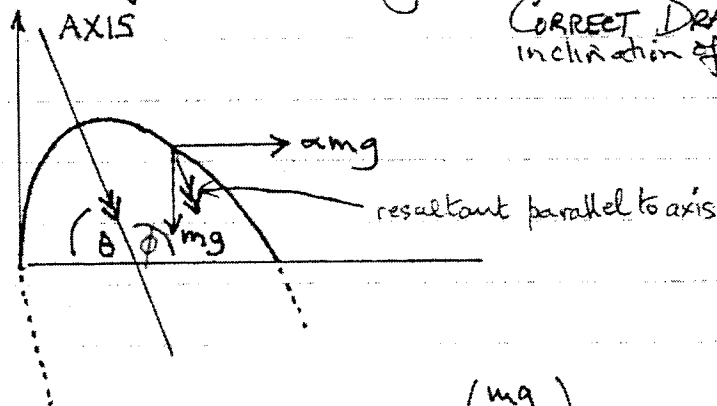 CORRECT DRA
AXIS
inclination of
αmg
resultant parallel to axis
θ
φ
mg
(mg)